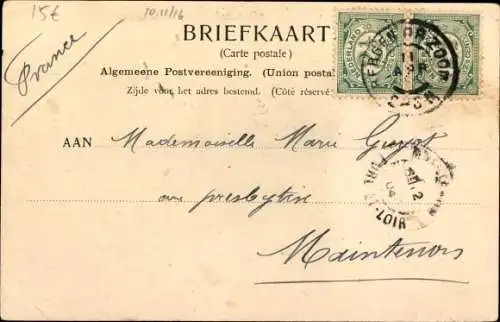 15€
10.11/16
France
BRIEFKAART
(Carte postale)
Algemeene Postvereeniging. (Union posta
Zijde voor het adres bestemd. (Côté réservé
NEDERLAND
BERGEN OP ZOOM
AAN Mademoiselle Marie
au presbytère
Maintenon